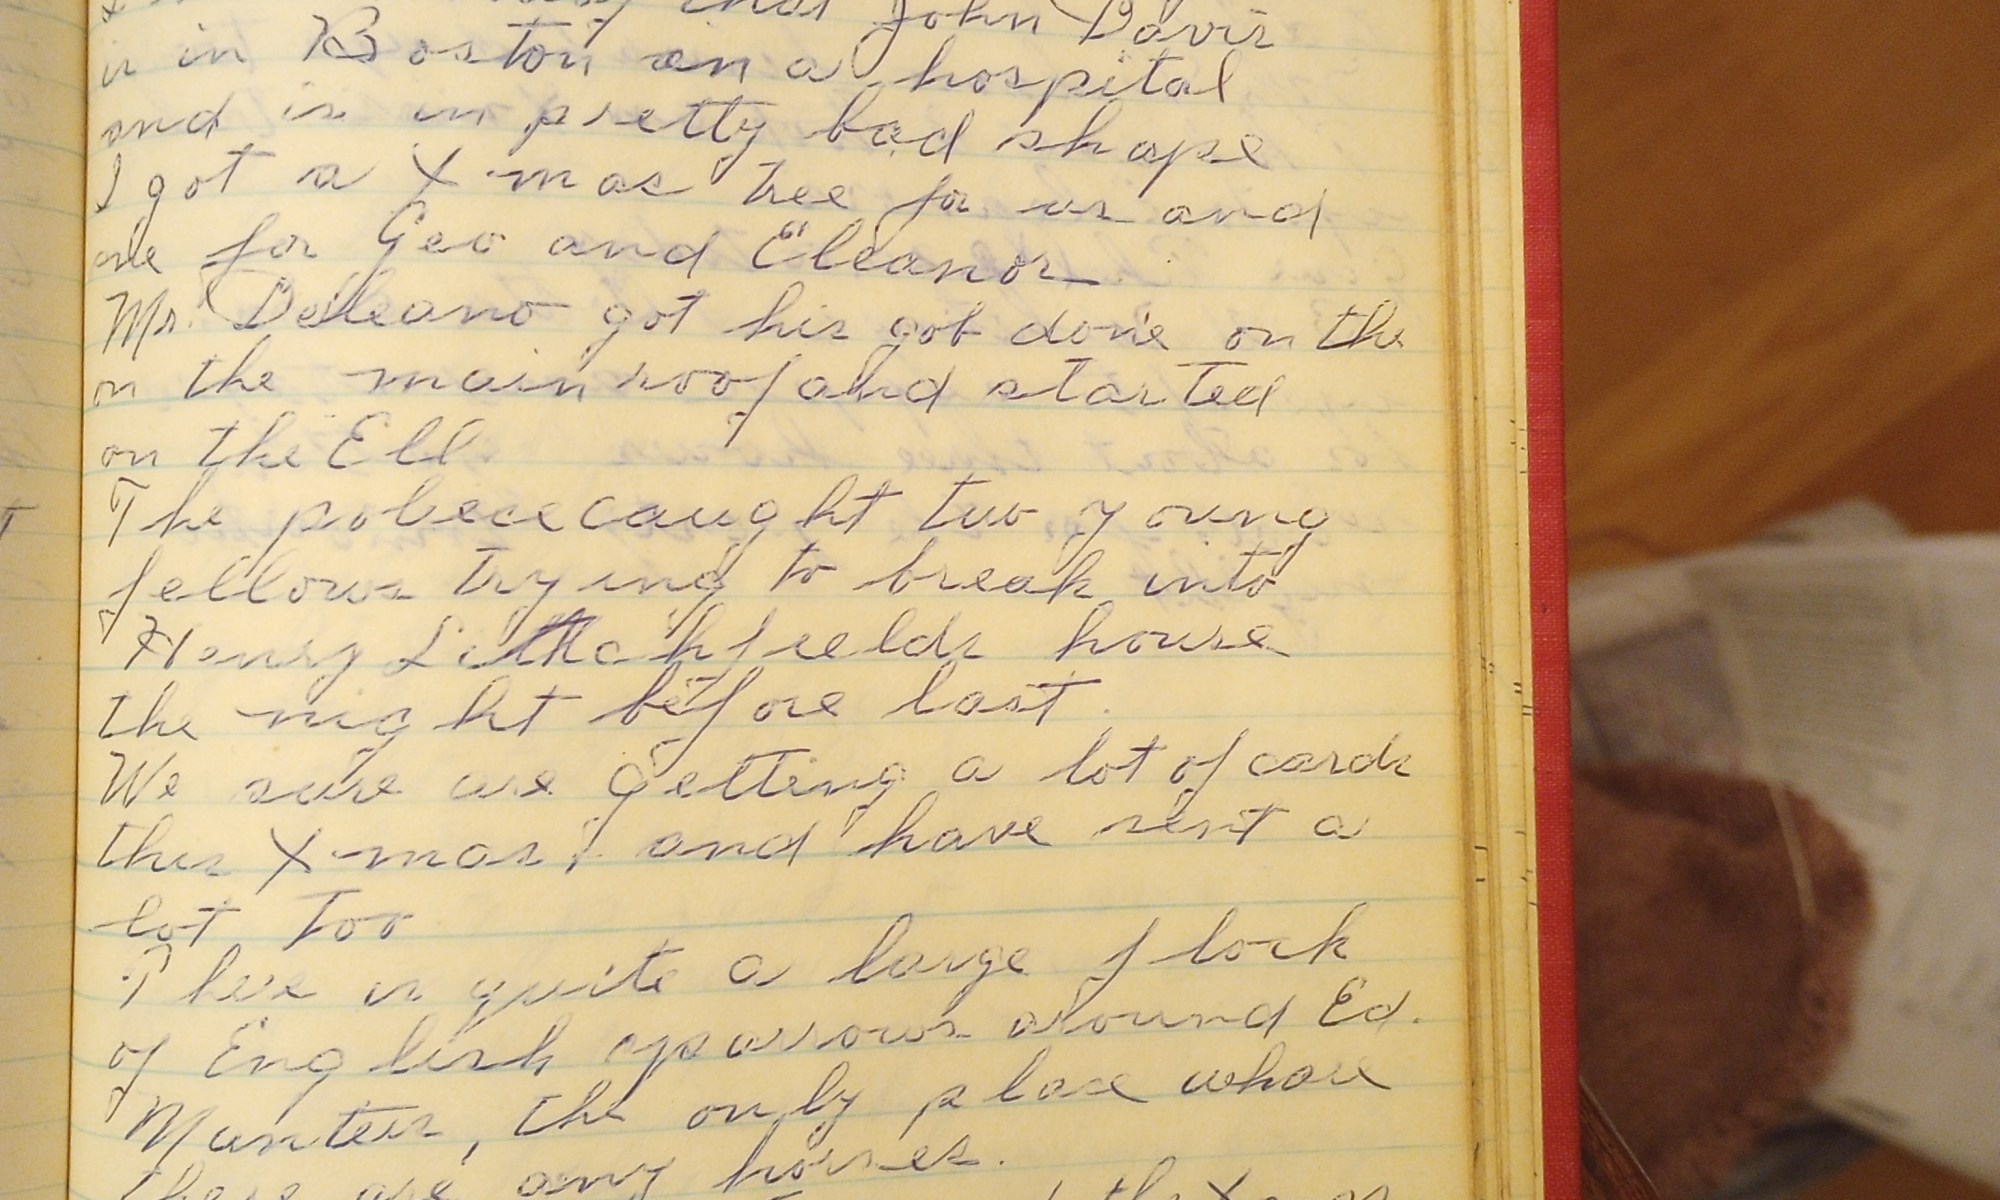 that John Davis
is in Boston in a hospital
and is in pretty bad shape
I got a X-mas tree for us and
one for Geo and Eleanor
Mr. got his gob done on the
on the main roof and started
on the Ell.
The poleece caught two young
fellows trying to break into
Henry house
the night before last.
We sure are getting a lot of cards
this X-mas, and have sent a
lot too
There is quite a large flock
of English sparrows around Ed.
Manters, the only place whare
there are any horses.